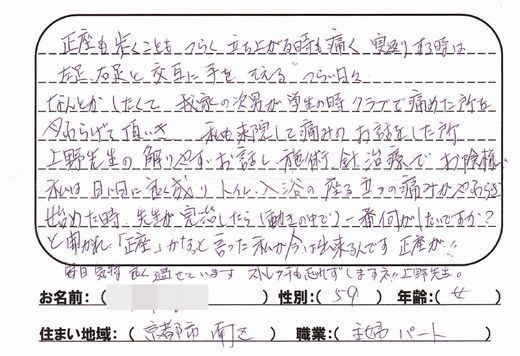 正座も歩くことも つらく 立ち上がる時も痛く 寝返りする時は
左足、右足と 交互に手を そえる つらい日々
なんとかしたくて 我家の次男が学生の時 クラブで痛めた所を
やわらげて頂いき 私も来院して痛みのお話をした所
上野先生の解りやすいお話し、施術、針治療で お陰様で
私は日に日に良く成り トイレ、入浴の座る立つの痛みがやわらぎ
始めた時、先生が完治したら(動きの中で)一番何がしたいですか?
と聞かれ「正座」かなぁと言った私が今は出来るんです 正座が!!
毎日気持良く過せています ストレッチも忘れずしますネ!! 上野先生。
お名前:( ) 性別:( 59 ) 年齢:( 女 )
住まい地域:( 京都市 南区 ) 職業:( 主婦 パート )